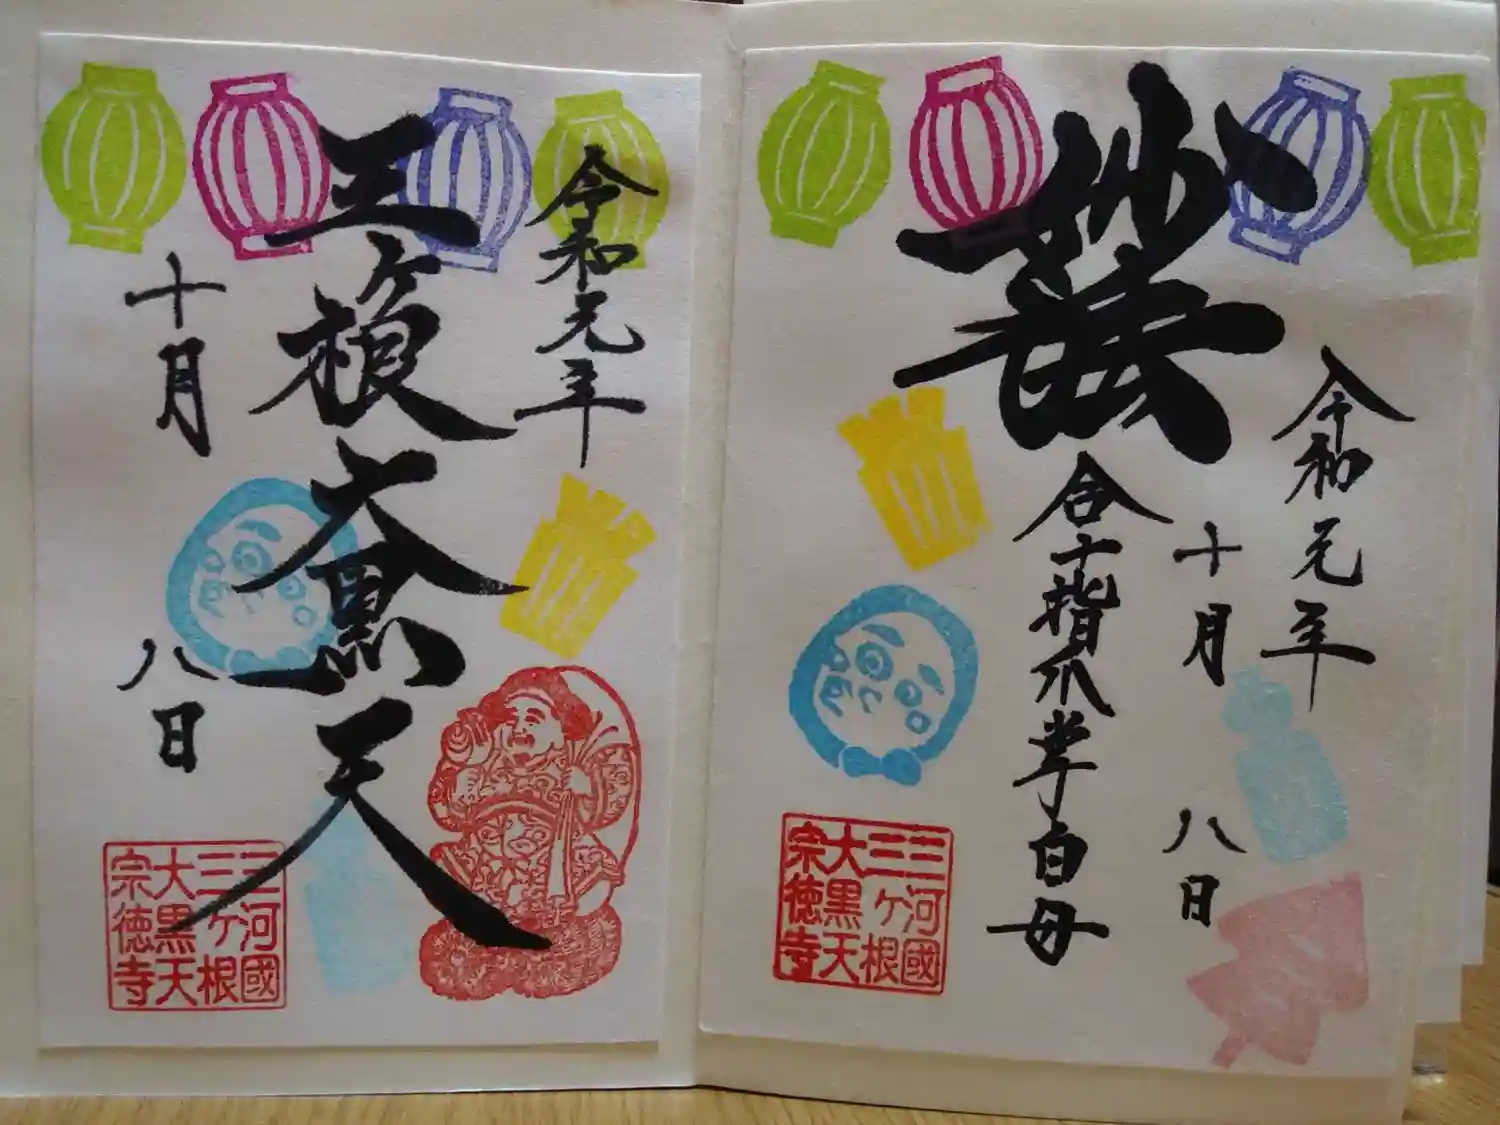 妙法
令和元年
十月
八日
合十指爪掌白母
三河國
三ヶ根
大黒天
宗徳寺
令和元年
三ヶ根大黒天
十月
八日
三河國
三ヶ根
大黒天
宗徳寺